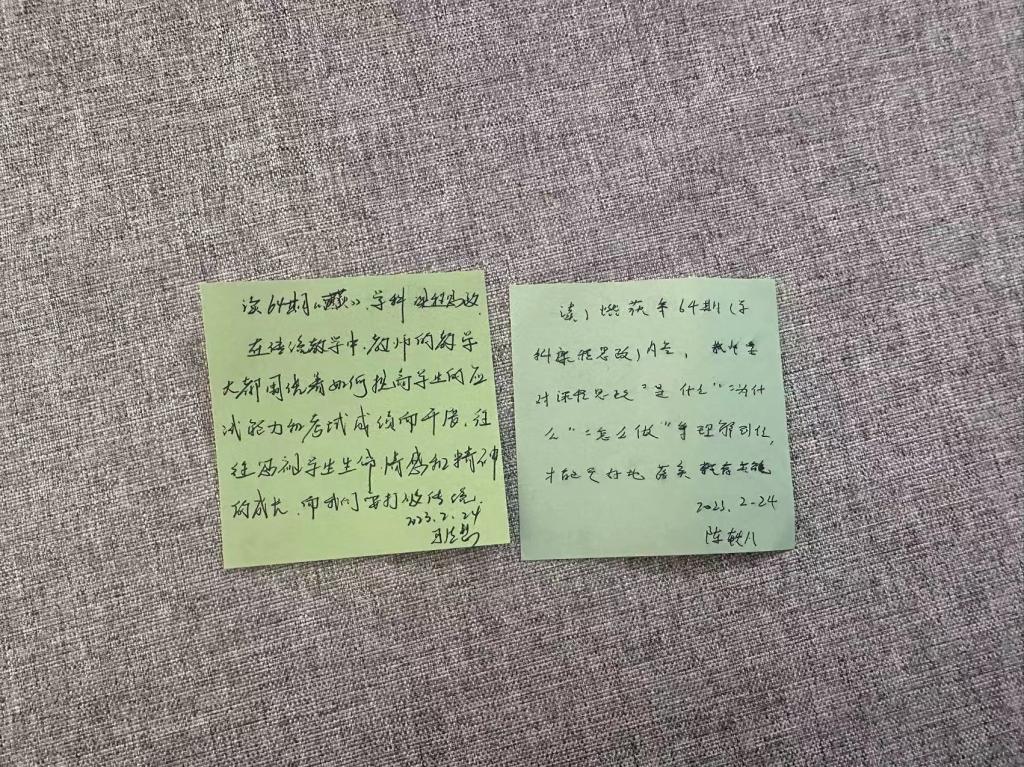 读64期《燃荻》学科课程思政
在语治教学中,教师的教学
大都围绕着如何提高学生的应
试能力和考试成绩而开展,往
往忽视学生生命情感和精神
的成长,而我们要打破传统.
2023.2.24
读,燃荻第64期《学
科课程思政》内容,教师要
对课程思政"是什么""为什
么""怎么做"等理解到位,
才能更好地落实
2023.2-24
陈